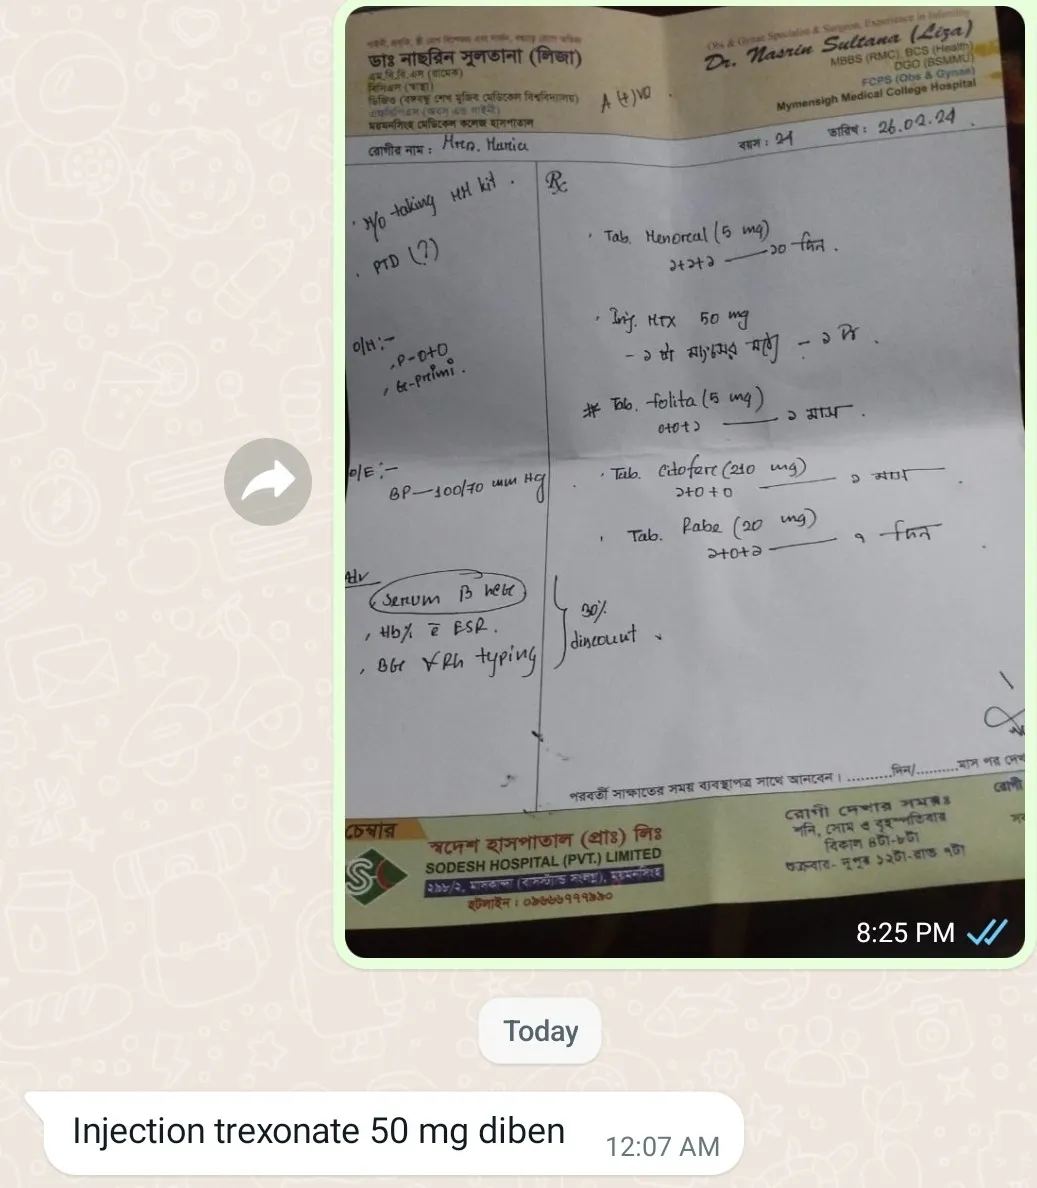 ডাঃ নাছরিন সুলতানা (লিজা)
এম.বি.বি.এস (রামেক)
বিসিএস (স্বাস্থ্য)
ডিজিও (বঙ্গবন্ধু শেখ মুজিব মেডিকেল বিশ্ববিদ্যালয়)
ময়মনসিংহ মেডিকেল কলেজ হাসপাতাল
A (+) ve
Obs & Gynae Specialist & Surgeon, Experience in Infertility
Dr. Nasrin Sultana (Liza)
MBBS (RMC), BCS (Health)
DGO (BSMMU)
FCPS (Obs & Gynae)
Mymensigh Medical College Hospital
রোগীর নাম : Mrs. Maria
বয়স : 21
তারিখ : 26.02.24
H/o taking MM kit.
PTD (?)
O/H:-
P-0+0
G-Primi.
O/E:-
BP-100/70 mm Hg
Adv
Serum β hCG
Hb% c̄ ESR.
BGr & Rh typing
30%
discount
Rx
Tab. Menoral (5 mg)
১+১+১ — ১০ দিন.
Inj. MTX 50 mg
- ১ টা মাংসের মধ্যে -
# Tab. folita (5 mg)
০+০+১ — ১ মাস.
Tab. Citofere (210 mg)
১+০+০ — ১ মাস
Tab. Rabe (20 mg)
১+০+১ — ৭ দিন
পরবর্তী সাক্ষাতের সময় ব্যবস্থাপত্র সাথে আনবেন। ..........দিন/..........মাস পর
চেম্বার
স্বদেশ হাসপাতাল (প্রাঃ) লিঃ
SODESH HOSPITAL (PVT.) LIMITED
রোগী দেখার সময়ঃ
শনি, সোম ও বৃহস্পতিবার
বিকাল ৪টা-৮টা
শুক্রবার- দুপুর ১২টা-রাত ৭টা
8:25 PM
Today
Injection trexonate 50 mg diben
12:07 AM